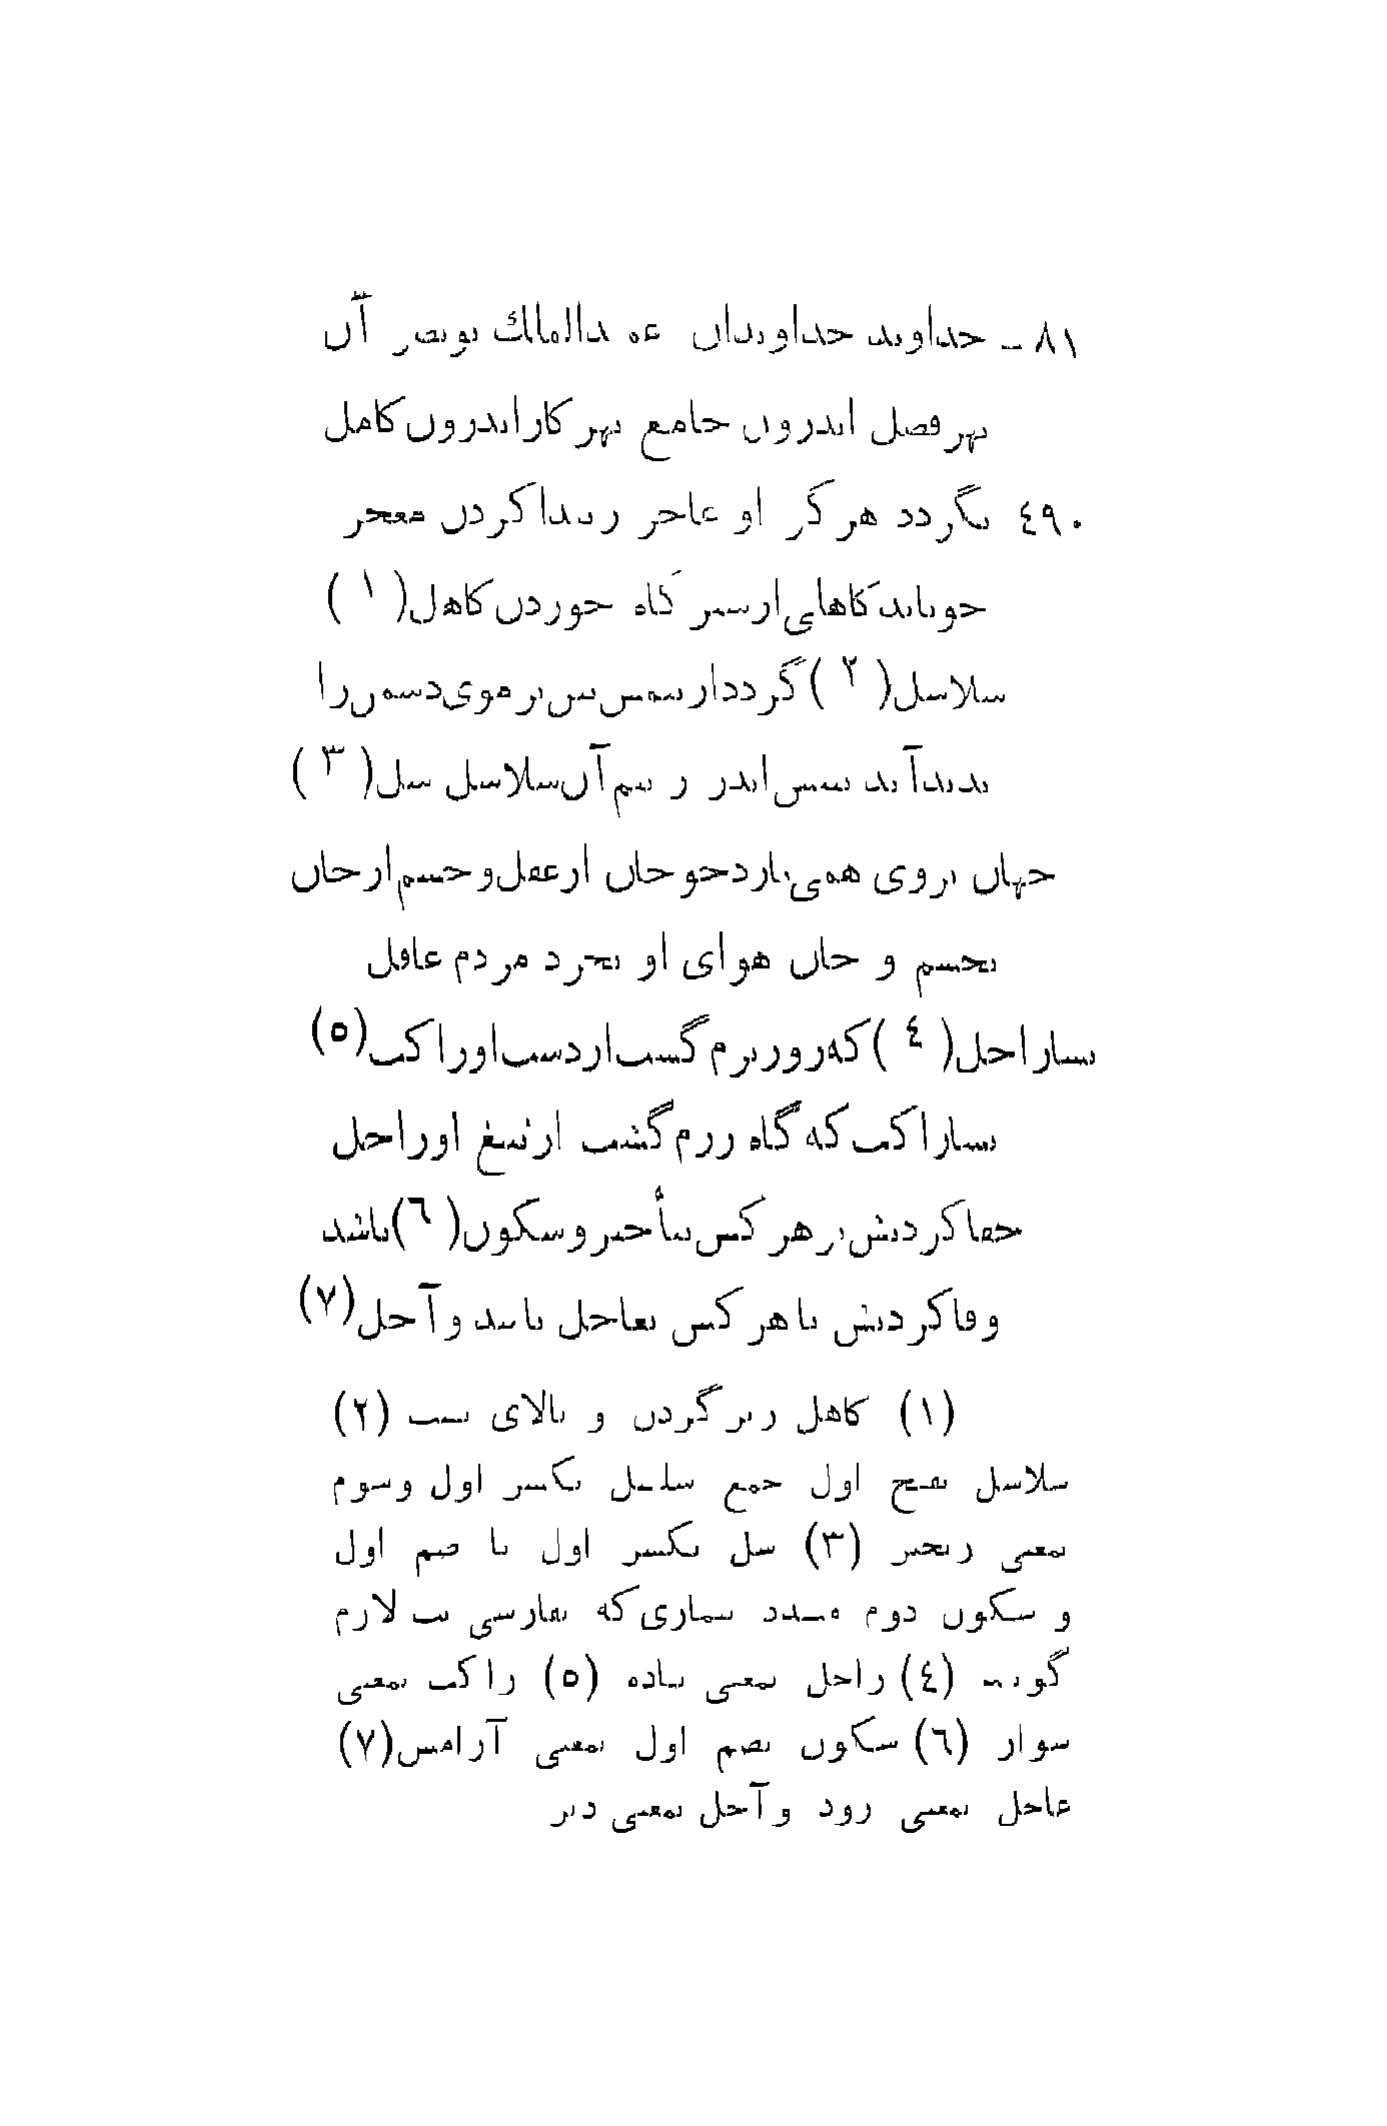 ٨١ - خداوند خداوندان عمیدالملك بونصر آن
بهر فصل اندرون جامع بهر کار اندرون کامل
٤٩٠ نگردد هرگز او عاجز زپیدا کردن معجز
چونابد کاهای ازسر گاه خوردن کاهل (١)
سلاسل (٢) گردد از بیمش بتن بر موی دشمن را
پدید آید تبش اندر ز بیم آن سلاسل سل (٣)
جهان بروی همی نازد چو جان از عقل و جسم از جان
بجسم و جان هوای او بخرد مردم عاقل
بسا راجل (٤) که روز بزم گشت از دست او راکب (٥)
بسا راکب که گاه رزم گشت از تیغ او راجل
جفا کردنش بر هر کس بتأخیر و سکون (٦) باشد
وفا کردنش با هر کس بعاجل باشد و آجل (٧)
(١) کاهل زیر گردن و بالای پشت (٢)
سلاسل بفتح اول جمع سلسل بکسر اول وسوم
بمعنی زنجیر (٣) سل بکسر اول یا ضم اول
و سکون دوم مشدد بیماری که بفارسی تب لازم
گویند (٤) راجل بمعنی پیاده (٥) راکب بمعنی
سوار (٦) سکون بضم اول بمعنی آرامش (٧)
عاجل بمعنی زود و آجل بمعنی دیر